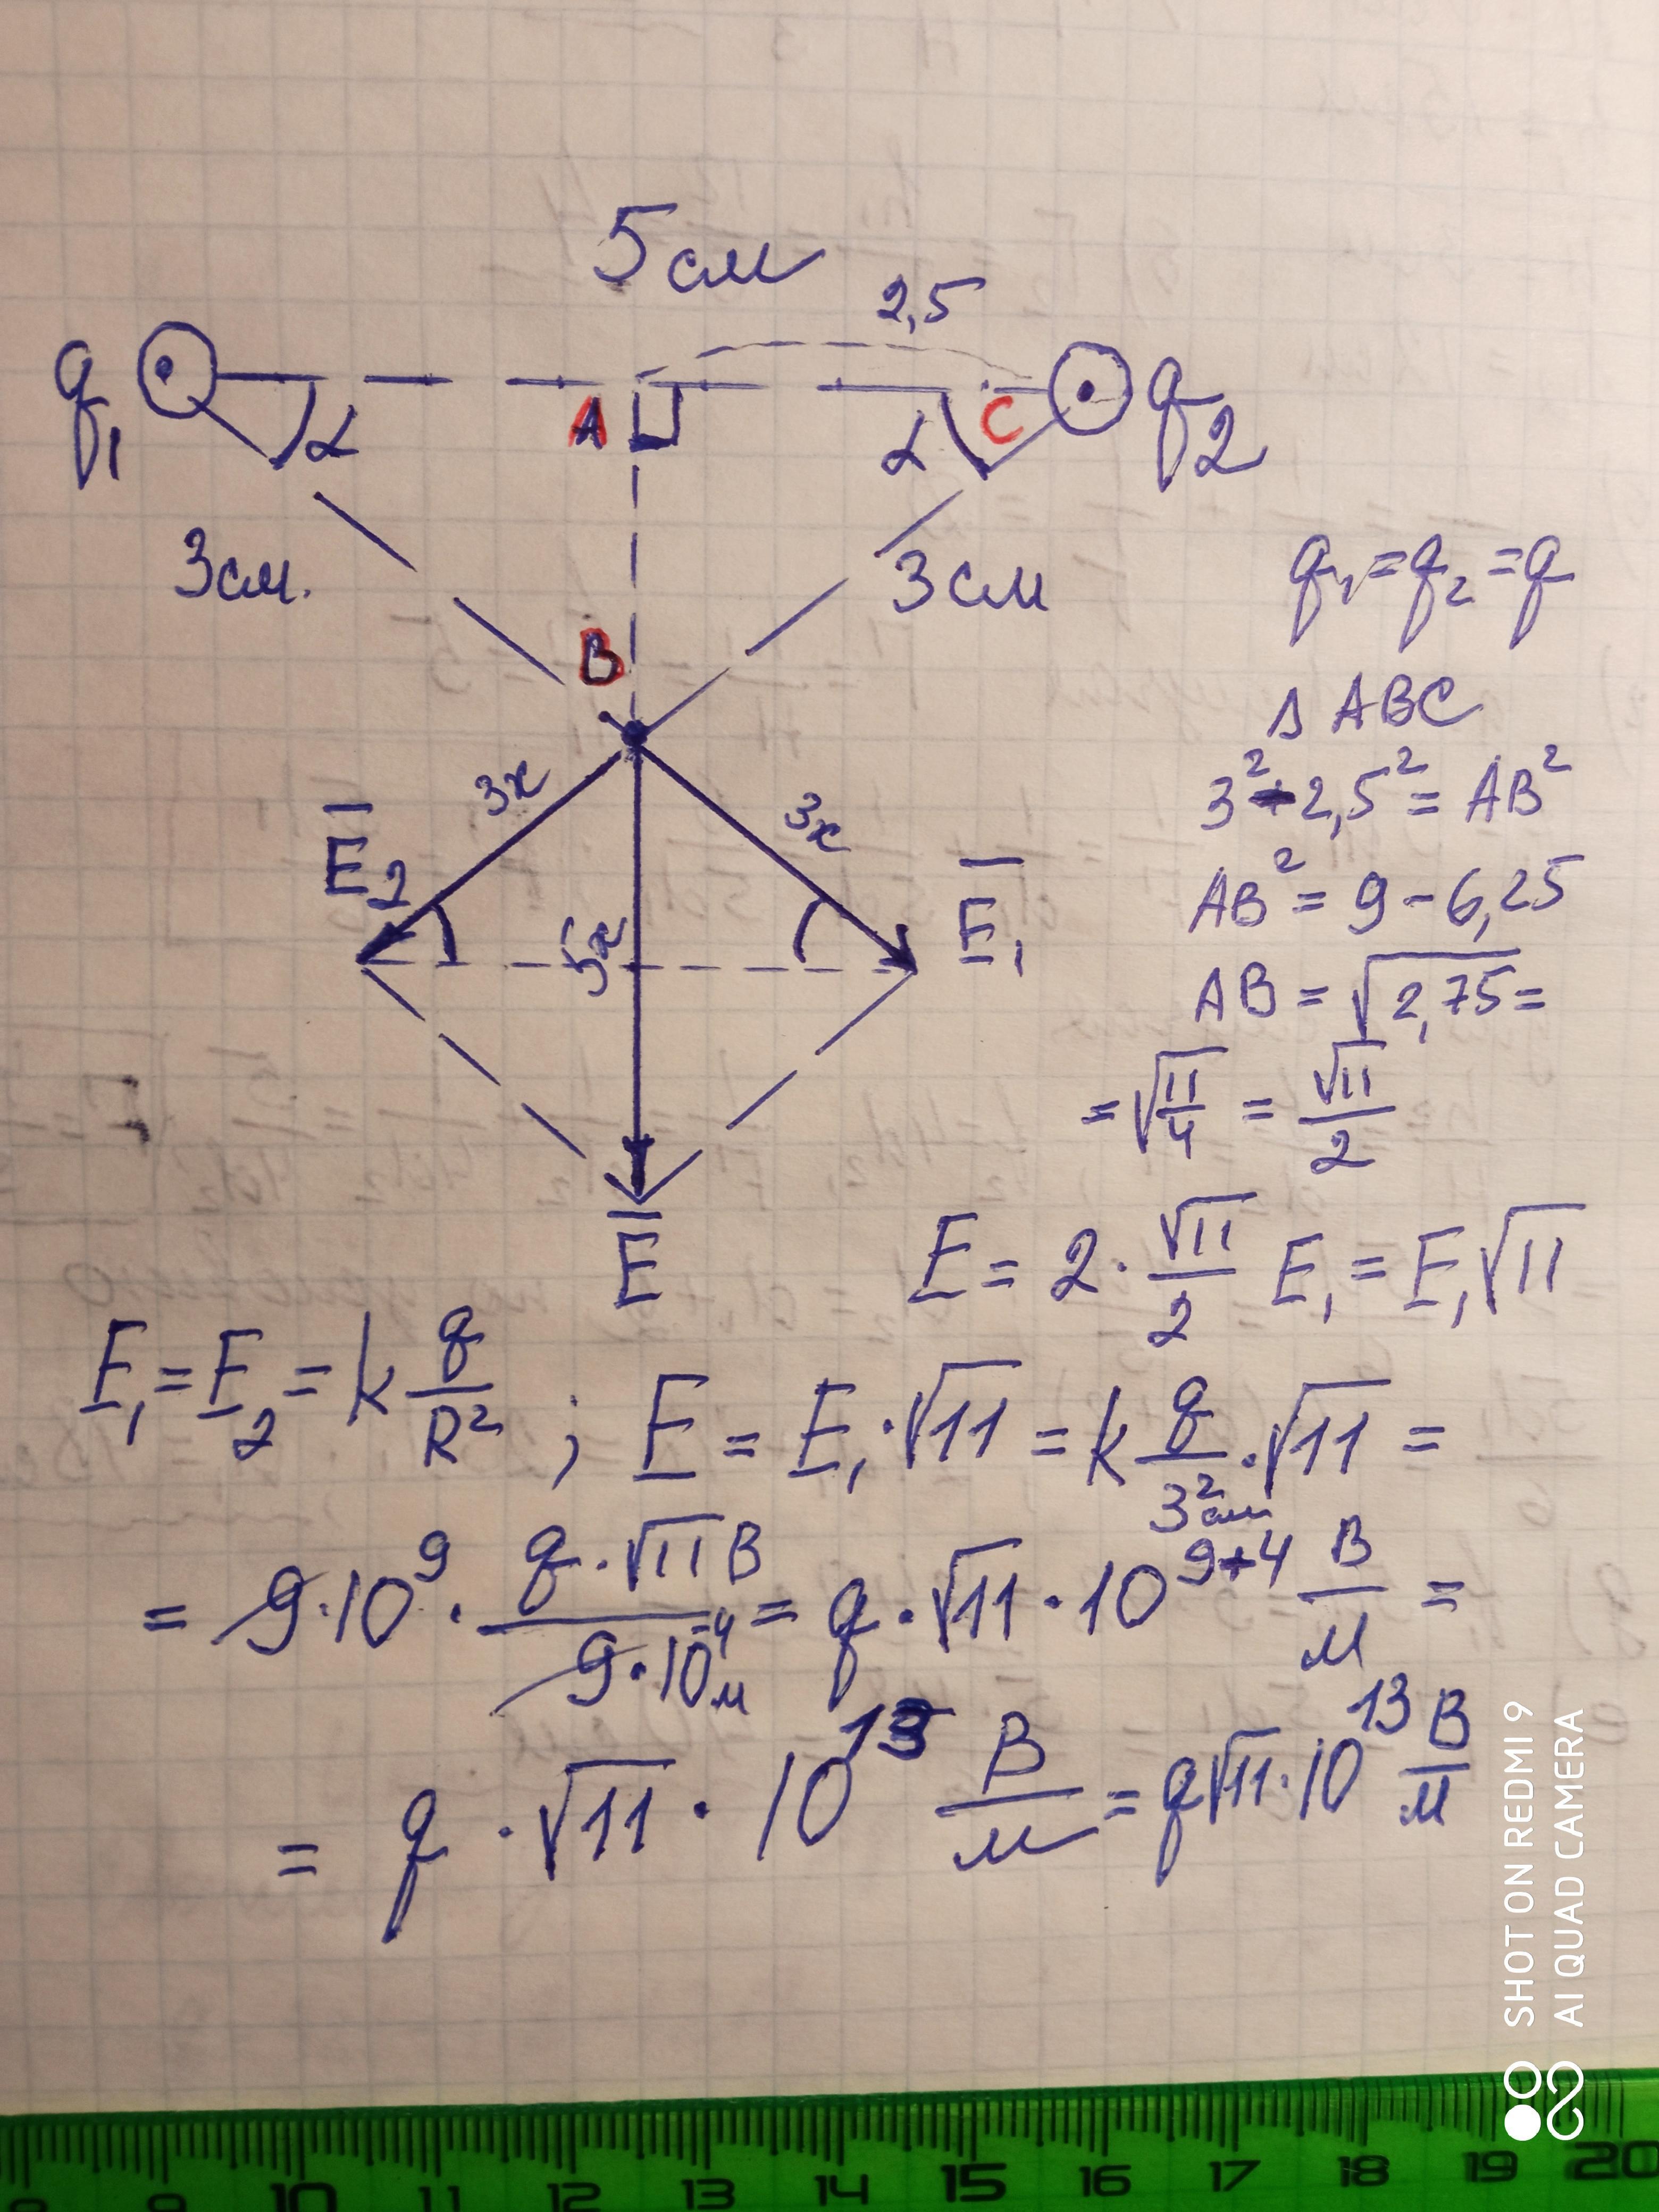 5 см
2,5
q₁
A
α
α
C
q₂
3 см.
3 см
q₁ = q₂ = q
B
Δ ABC
3² - 2,5² = AB²
3x
3x
E̅₂
E̅₁
AB² = 9 - 6,25
5x
AB = √2,75 =
= √11/4 = √11/2
E̅
E = 2 · √11/2 E₁ = E₁√11
E₁ = E₂ = k q/R² ; E = E₁ · √11 = k q/3² см · √11 =
= 9 · 10⁹ · q · √11 В/9 · 10⁻⁴ м = q · √11 · 10⁹⁺⁴ В/м =
= q · √11 · 10¹³ В/м = q√11 · 10¹³ В/м
SHOT ON REDMI 9
AI QUAD CAMERA
8 9 10 11 12 13 14 15 16 17 18 19 20